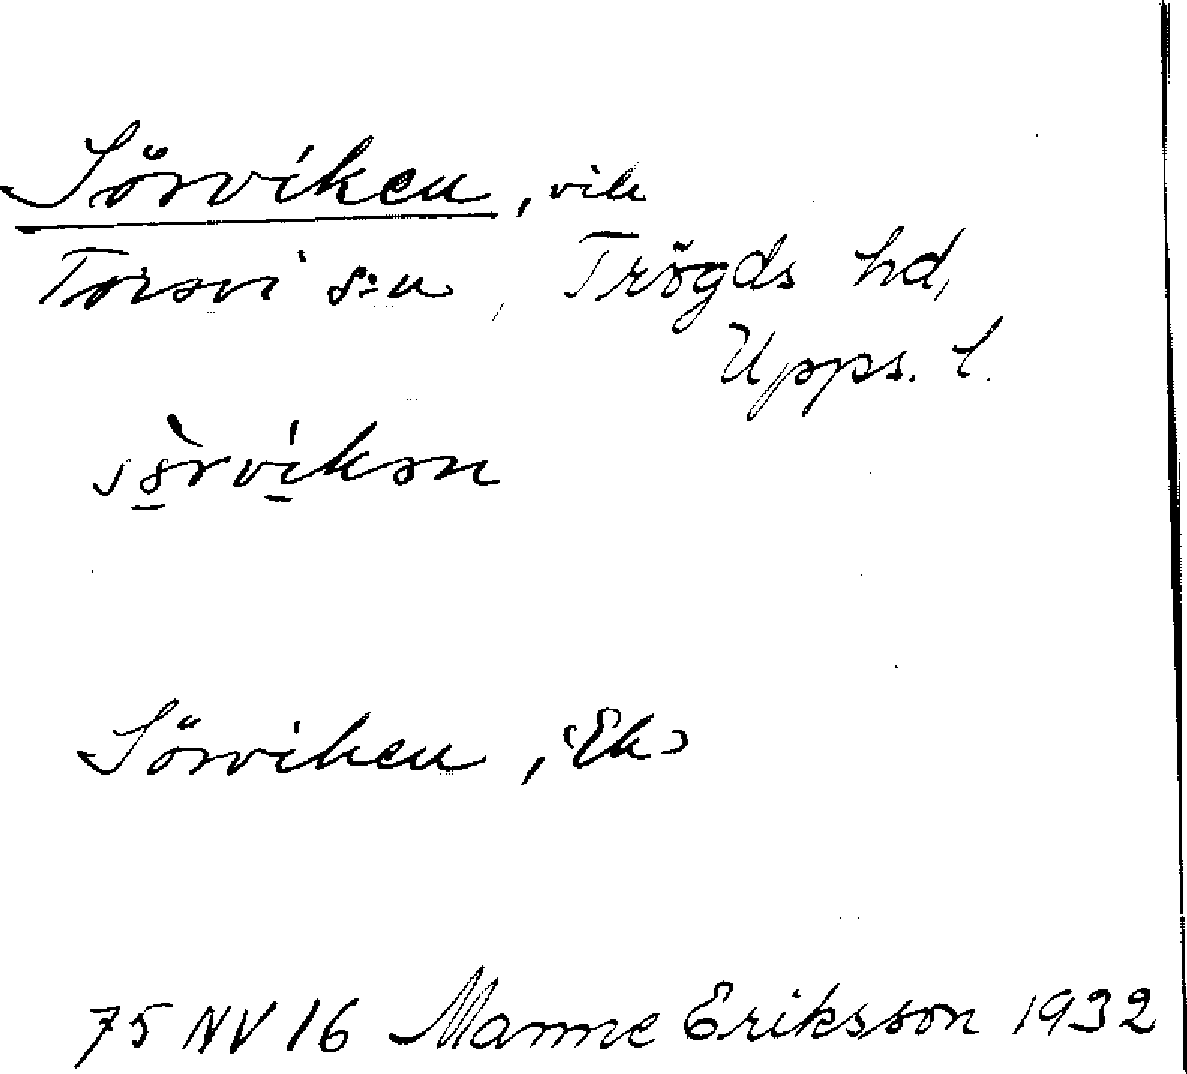 Sörviken, vik
Torsvi s:n, Trögds hd,
Upps. l.
sör̀víkən
Sörviken, (Ek)
75 NV 16 Manne Eriksson 1932